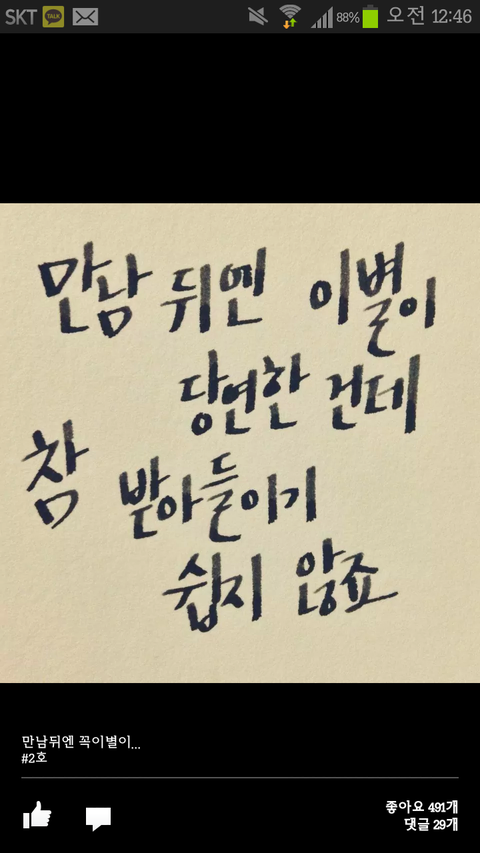 SKT TALK 88% 오전 12:46
만남 뒤엔 이별이
당연한 건데
참 받아들이기
쉽지 않죠
만남뒤엔 꼭이별이...
#2호
좋아요 491개
댓글 29개